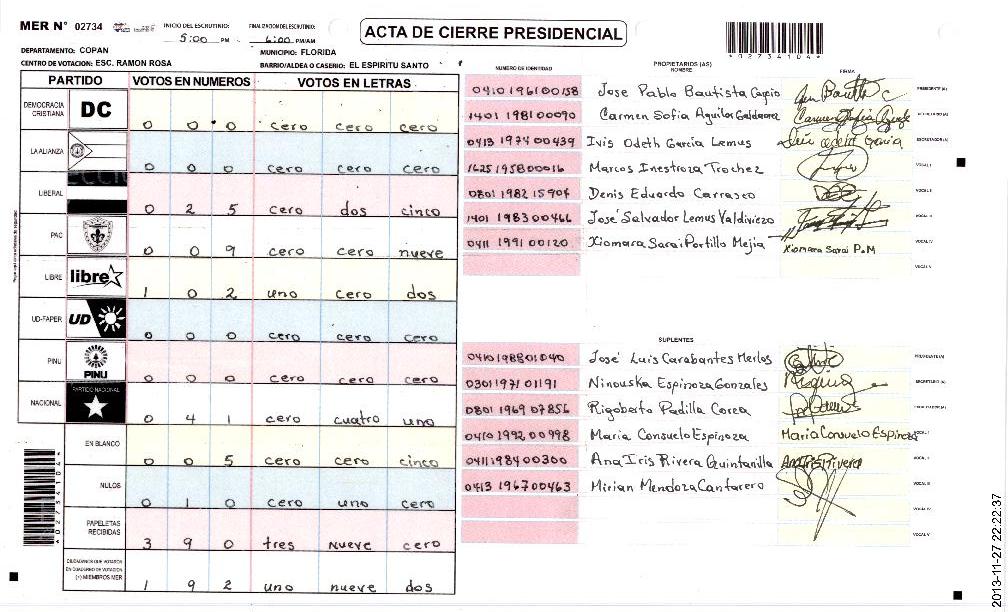 MER N° 02734
INICIO DEL ESCRUTINIO: 5:00 PM
FINALIZACION DEL ESCRUTINIO: 6:00 PM/AM
ACTA DE CIERRE PRESIDENCIAL
*02734104*
DEPARTAMENTO: COPAN
MUNICIPIO: FLORIDA
CENTRO DE VOTACION: ESC. RAMON ROSA
BARRIO/ALDEA O CASERIO: EL ESPIRITU SANTO
PARTIDO VOTOS EN NUMEROS VOTOS EN LETRAS
DEMOCRACIA CRISTIANA DC 0 0 0 cero cero cero
LA ALIANZA 0 0 0 cero cero cero
LIBERAL 0 2 5 cero dos cinco
PAC 0 0 9 cero cero nueve
LIBRE libre 1 0 2 uno cero dos
UD-FAPER UD 0 0 0 cero cero cero
PINU PINU 0 0 0 cero cero cero
NACIONAL PARTIDO NACIONAL 0 4 1 cero cuatro uno
EN BLANCO 0 0 5 cero cero cinco
NULOS 0 1 0 cero uno cero
PAPELETAS RECIBIDAS 3 9 0 tres nueve cero
CIUDADANOS QUE VOTARON EN CUADERNO DE VOTACION (+) MIEMBROS MER 1 9 2 uno nueve dos
*02734104*
NUMERO DE IDENTIDAD PROPIETARIOS (AS) NOMBRE FIRMA
0410196100158 Jose Pablo Bautista PRESIDENTE(A)
1401 198100090 Carmen Sofia Aguilar SECRETARIO(A)
0413 197400439 Ivis Odeth Garcia Lemus ESCRUTADOR(A)
1625195800016 Marcos Inestroza Trochez VOCAL I
0801 1982 15904 Denis Eduardo Carrasco VOCAL II
1401 198300466 José Salvador Lemus Valdiviezo VOCAL III
0411 1991 00120 Xiomara Sarai Portillo Mejia Xiomara Sarai P.M VOCAL IV
VOCAL V
SUPLENTES
0410198801040 José Luis Carabantes Merlos PRESIDENTE(A)
0301197101191 Ninouska Espinoza Gonzales SECRETARIO(A)
0801 1969 07856 Rigoberto Padilla Corea ESCRUTADOR(A)
0410 1992 00998 Maria Consuelo Espinoza Maria Consuelo Espinoza VOCAL I
0411198400300 Ana Iris Rivera Quintanilla Ana Iris Rivera VOCAL II
0413 196700463 Mirian Mendoza Cantarero VOCAL III
VOCAL IV
VOCAL V
2013-11-27 22:22:37